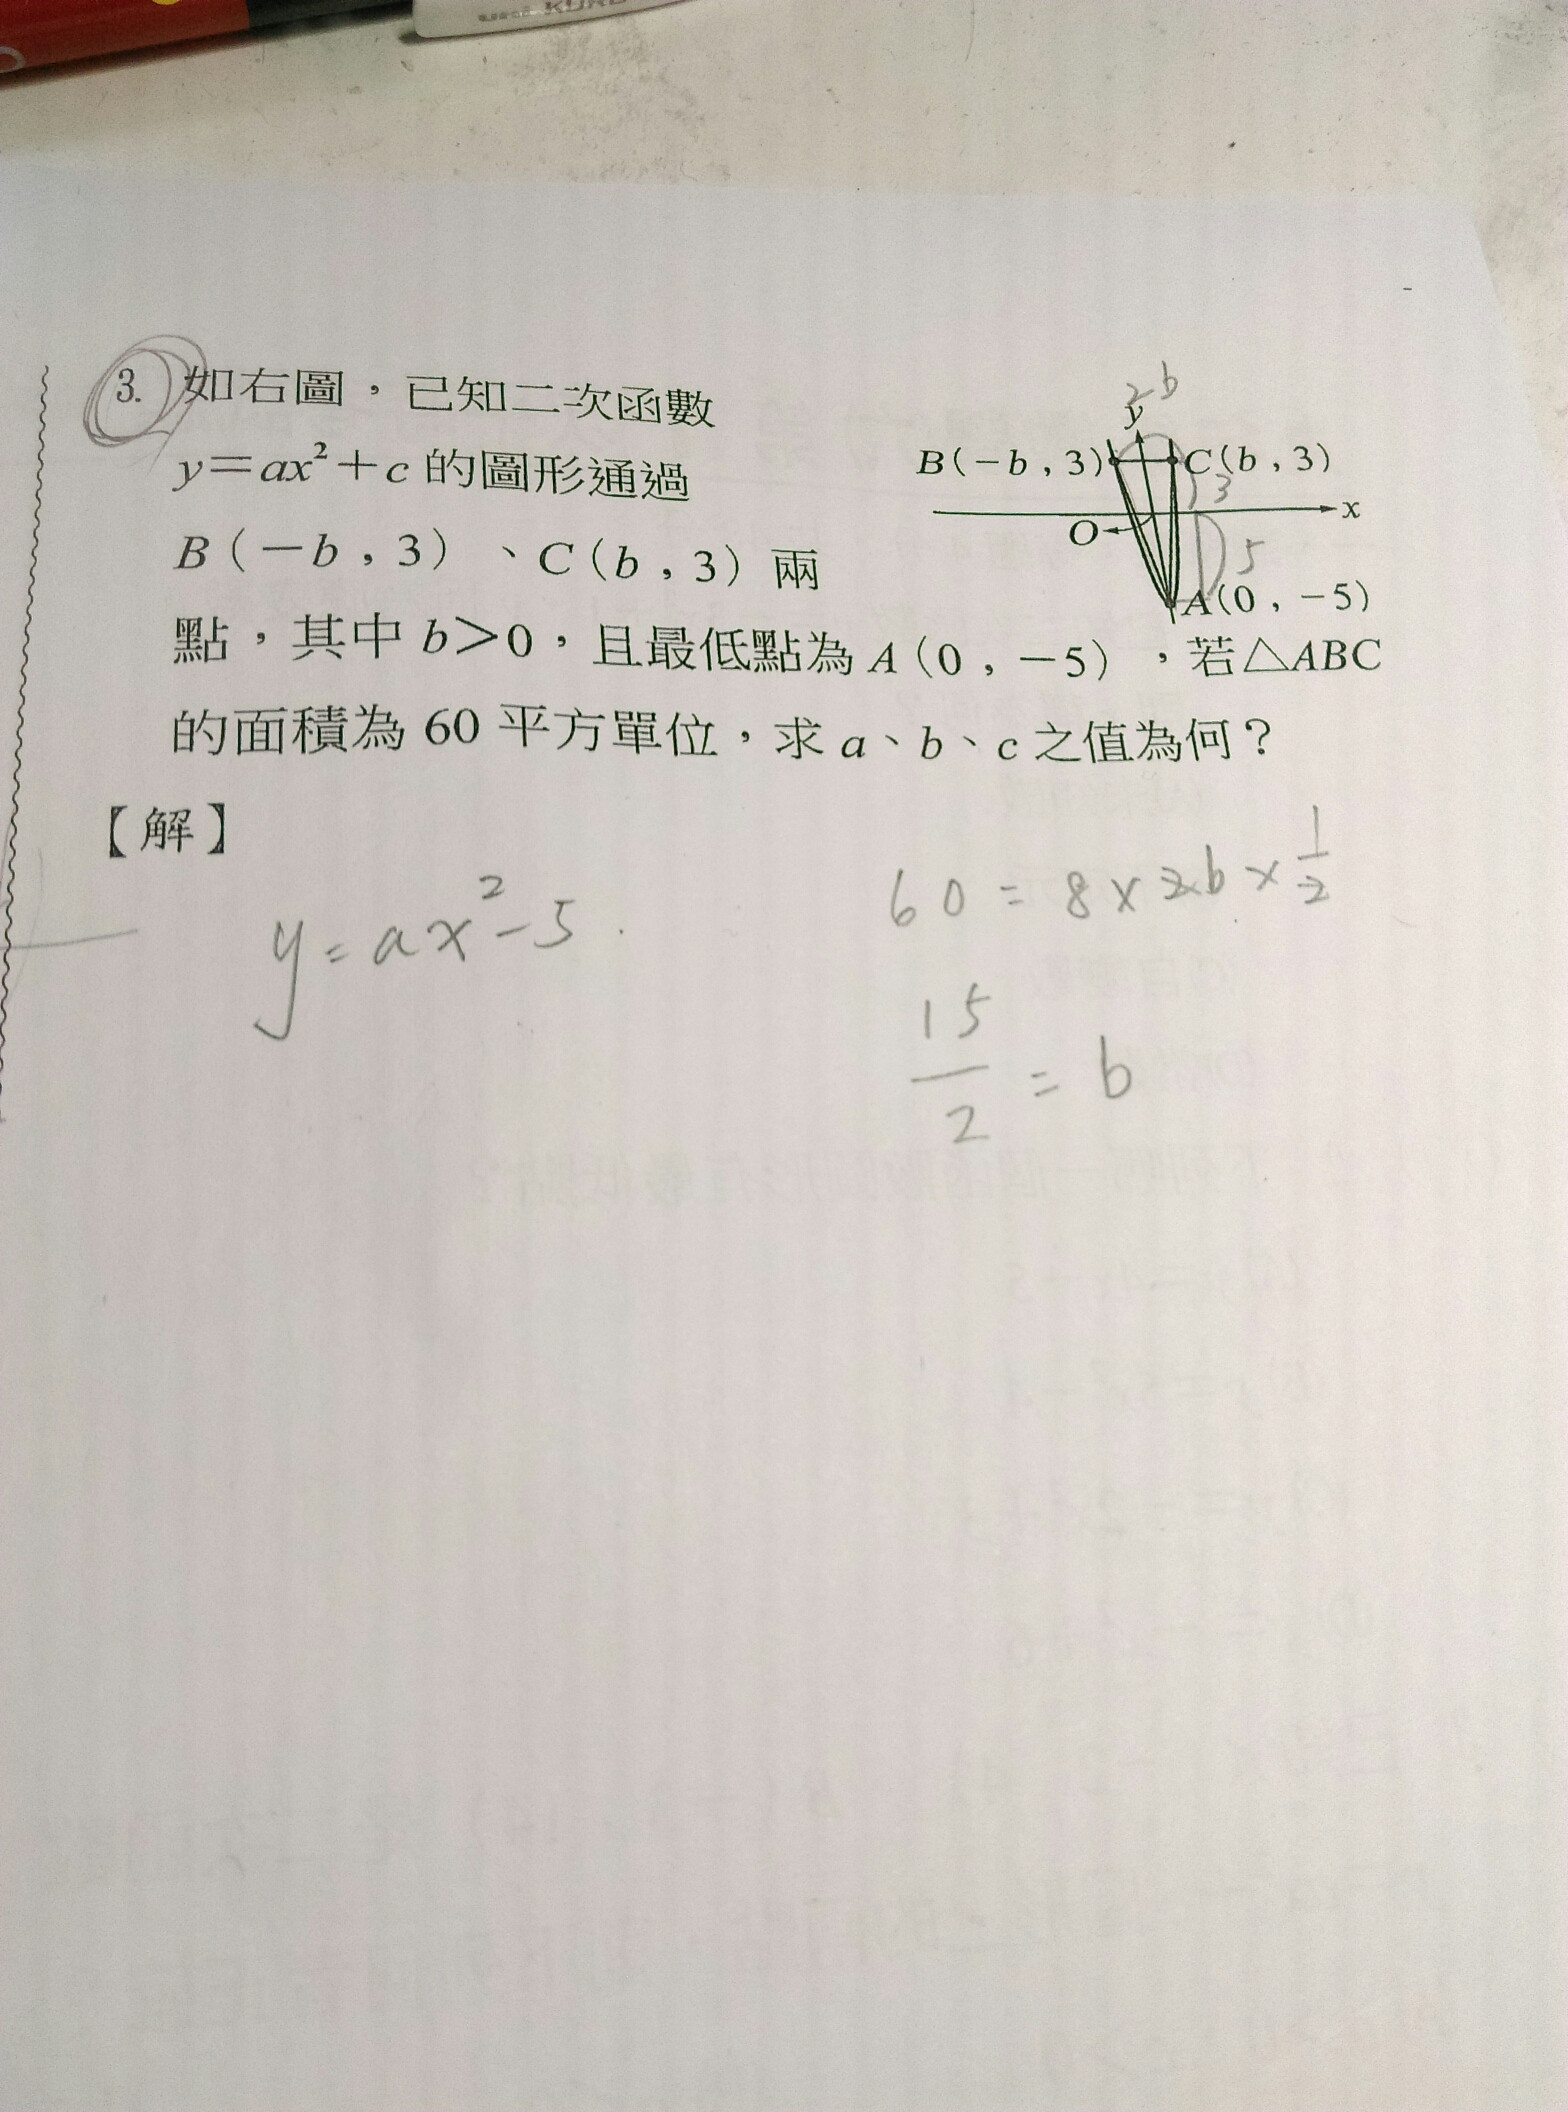 uni KURU
3. 如右圖，已知二次函數
y＝ax²＋c 的圖形通過
B（－b，3）、C（b，3）兩
點，其中 b＞0，且最低點為 A（0，－5），若△ABC
的面積為 60 平方單位，求 a、b、c 之值為何？
2b
y
B(－b，3)
C(b，3)
3
x
O
5
A(0，－5)
【解】
y=ax²-5
60=8×2b×1/2
15/2=b